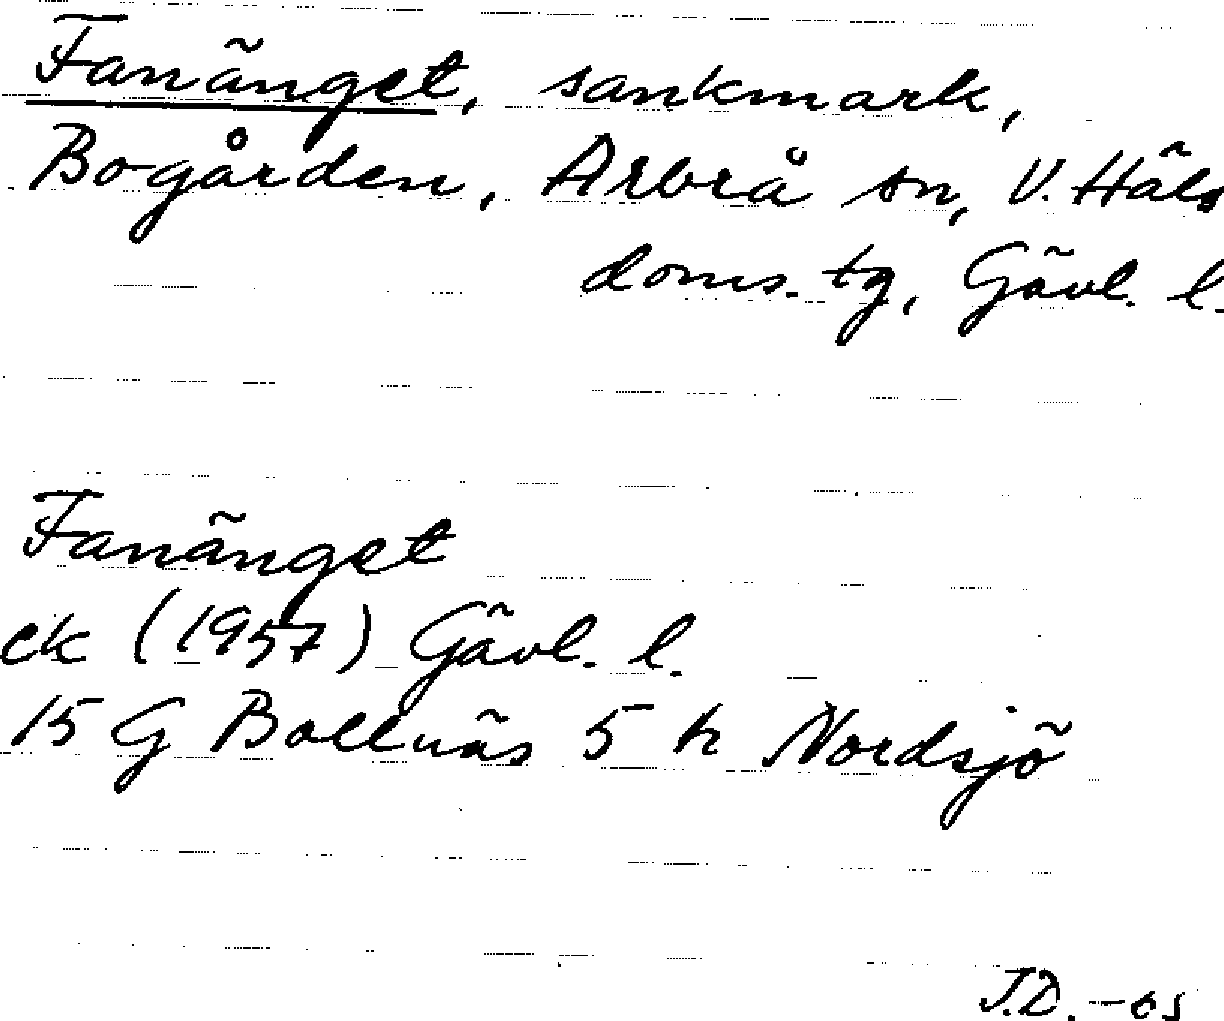 Fanänget, sankmark,
Bogården, Arbrå sn, V. Häls
doms. tg, Gävl. l.
Fanänget
ek (1957) Gävl. l.
15 G Bollnäs 5 h Nordsjö
J.D. – os